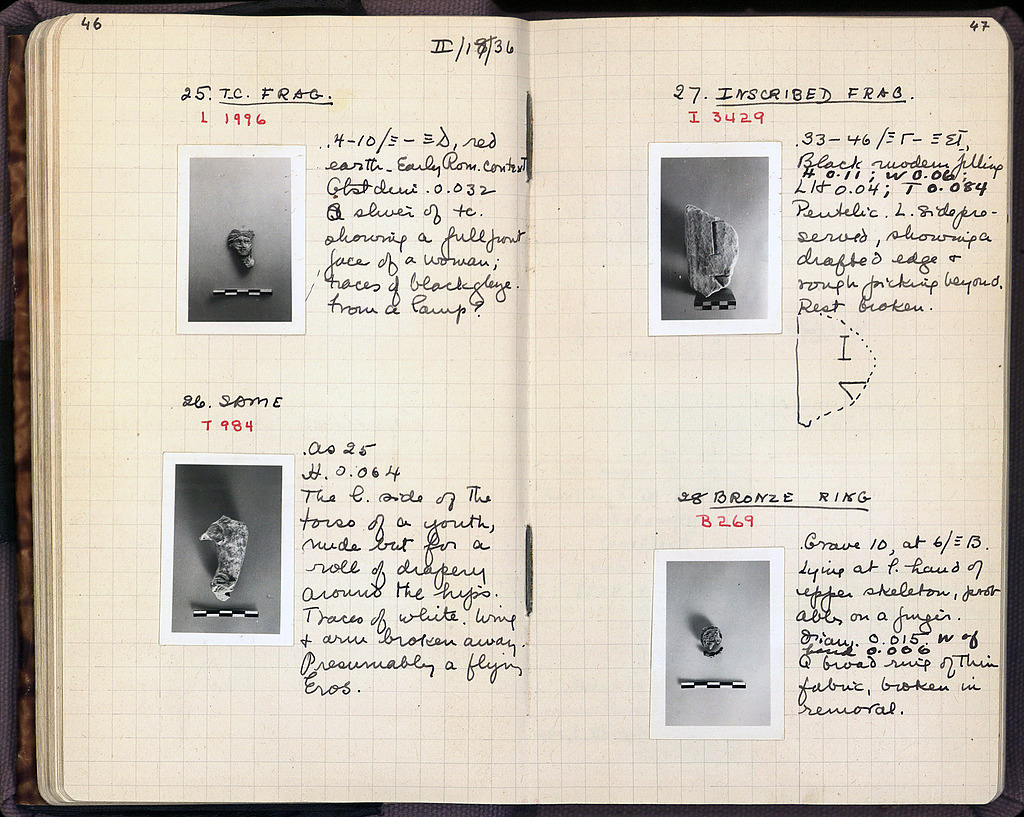 46
II/18/36
25. T.C. FRAG.
L 1996
.4-10/Ξ - ΞΔ, red
earth. Early Rom. context
Gtst dim. 0.032
A sliver of tc.
showing a full front
face of a woman;
traces of black glaze.
From a lamp?
26. SAME
T 984
.As 25
H. 0.064
The l. side of the
torso of a youth,
nude but for a
roll of drapery
around the hips.
Traces of white. Wing
& arm broken away.
Presumably a flying
Eros.
47
27. INSCRIBED FRAG.
I 3429
.33-46/ΞΓ - ΞΣΤ,
Black modern filling
H 0.11; W 0.06;
LH 0.04; T 0.084
Pentelic. L. side pre-
served, showing a
drafted edge &
rough picking beyond.
Rest broken.
I
28 BRONZE RING
B 269
.Grave 10, at 6/ΞB.
Lying at l. hand of
upper skeleton, prob
ably on a finger.
Diam. 0.015. W of
band 0.006
A broad ring of thin
fabric, broken in
removal.